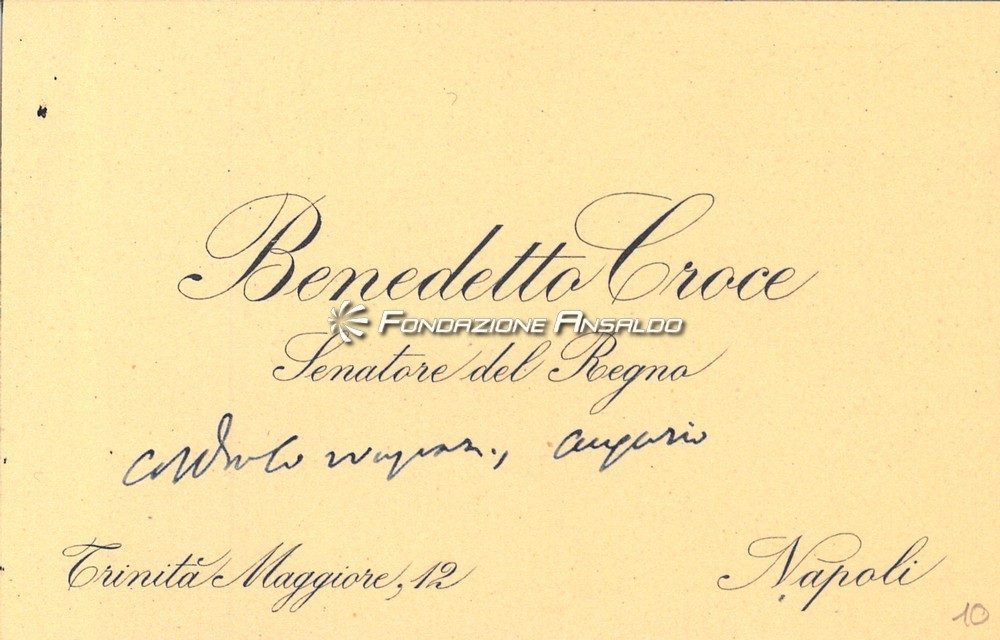 Benedetto Croce
FONDAZIONE ANSALDO
Senatore del Regno
augurio
Trinità Maggiore, 12
Napoli
10